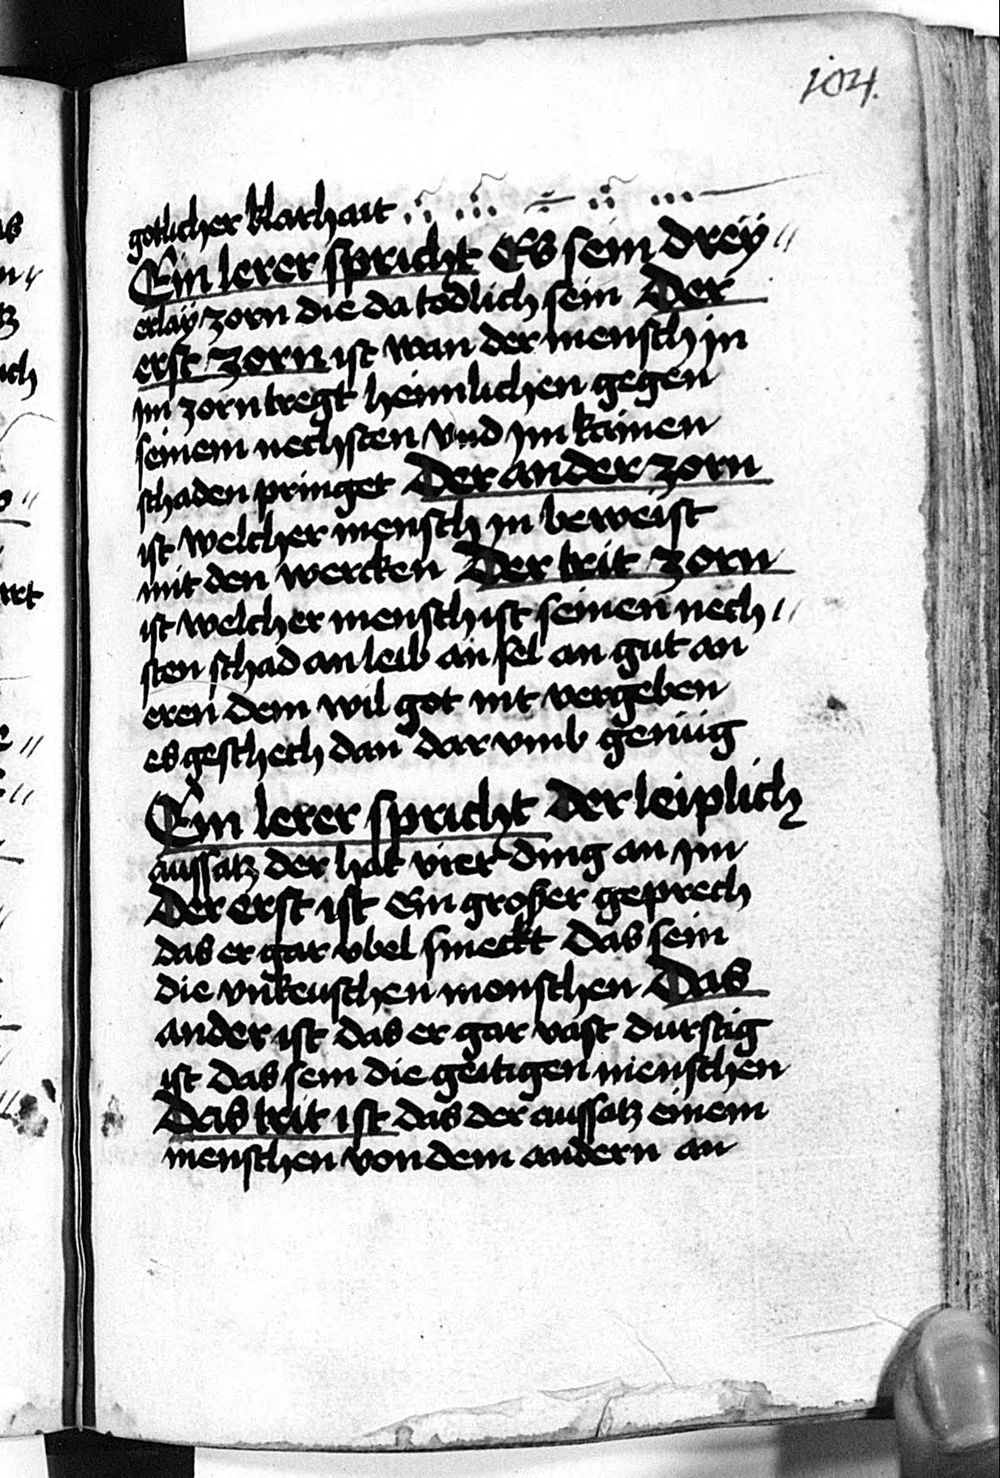 104.
gotlicher klarhait
Ein lerer spricht Es sein drey //
erlay zorn die da todlich sein Der
erst zorn ist wan der mensch in
im zorn tregt heimlichen gegen
seinem nechsten vnd im kainen
schaden pringet Der ander zorn
ist welcher mensch in beweist
mit den wercken Der trit zorn
ist welcher mensch ist seinen nech //
sten schad an leib an sel an gut an
eren dem wil got nit vergeben
es geschech dan dar vmb genug
Ein lerer spricht Der leiplich
aussatz der hat vier ding an im
Der erst ist Ein großer geprech
das er gar vbel smeckt Das sein
die vnkeuschen menschen Das
ander ist das er gar vast durstig
ist das sein die geitigen menschen
Das trit ist das der aussatz einem
menschen von dem andern an